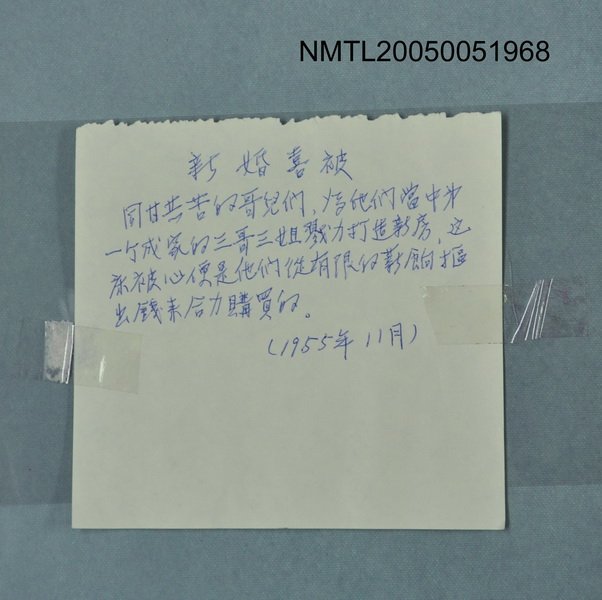 NMTL20050051968
新婚喜被
同甘共苦的哥兒們,為他們當中第
一个成家的三哥三姐戮力打造新房,这
床被心便是他們從有限的薪餉摳
出錢来合力購買的。
(1955年11月)